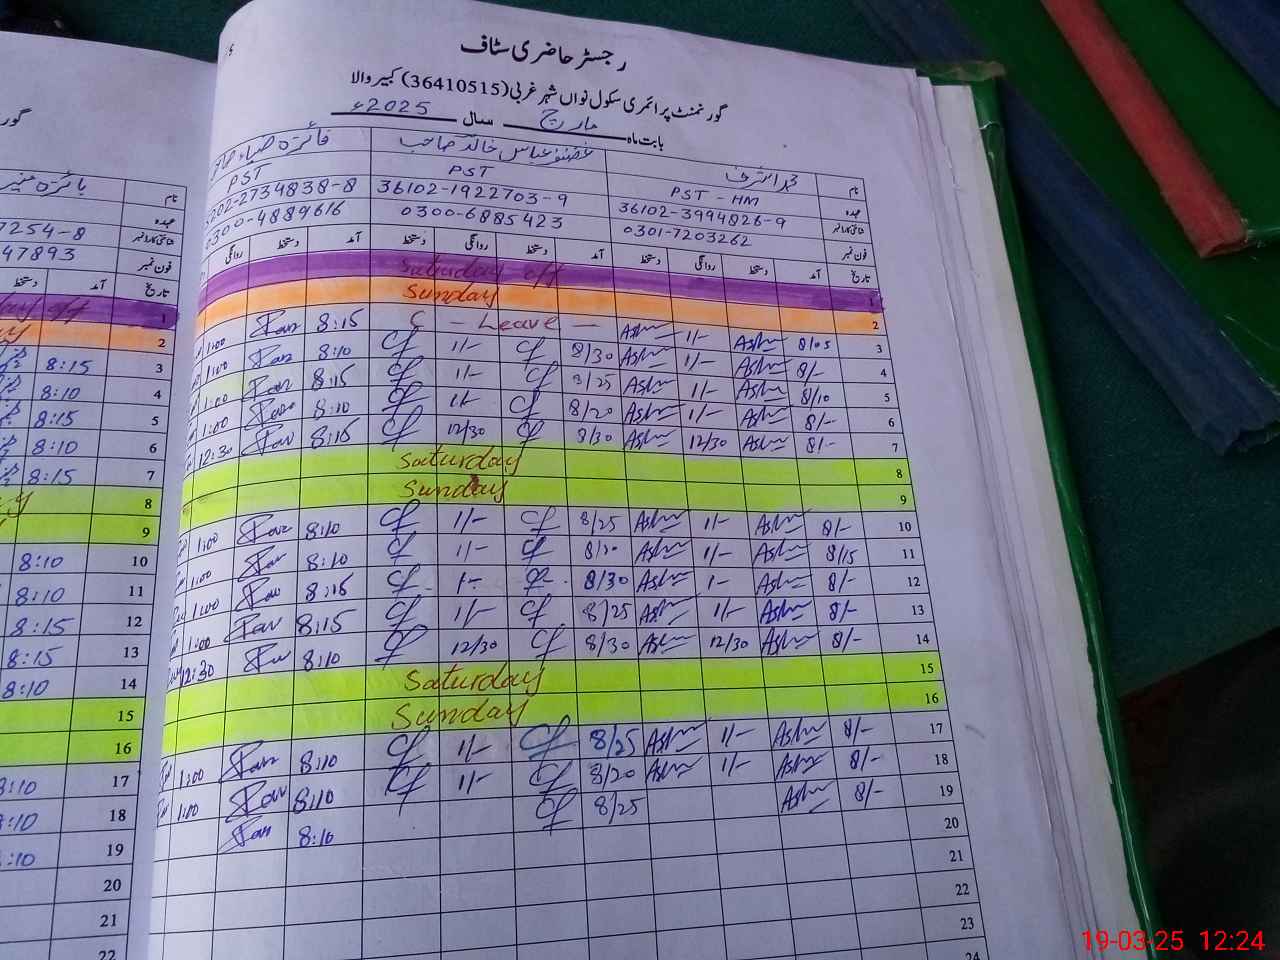 رجسٹر حاضری سٹاف
گورنمنٹ پرائمری سکول نواں شہر غربی (36410515) کبیر والا
بابت ماہ مارچ سال 2025ء
نام محمد اشرف غضنفر عباس خالد صاحب فائزہ
عہدہ PST - HM PST PST
شناختی کارڈ نمبر 36102-3994826-9 36102-1922703-9 202-2734838-8
فون نمبر 0301-7203262 0300-6885423 0300-4889616
تاریخ آمد دستخط روانگی دستخط آمد دستخط روانگی دستخط آمد دستخط روانگی
1 Saturday off
2 Sunday
3 8/05 Ash 1/- Ash C - Leave - 8:15 1:00
4 8/- Ash 1/- Ash 8/30 1/- 8:10 1:00
5 8/10 Ash 1/- Ash 8/25 1/- 8:15 1:00
6 8/- Ash 1/- Ash 8/20 1/- 8:10 1:00
7 8/- Ash 12/30 Ash 8/30 12/30 8:15 12:30
8 Saturday
9 Sunday
10 8/- Ash 1/- Ash 8/25 1/- 8:10 1:00
11 8/15 Ash 1/- Ash 8/20 1/- 8:10 1:00
12 8/- Ash 1- Ash 8/30 1- 8:15 1:00
13 8/- Ash 1/- Ash 8/25 1/- 8:15 1:00
14 8/- Ash 12/30 Ash 8/30 12/30 8:10 12:30
15 Saturday
16 Sunday
17 8/- Ash 1/- Ash 8/25 1/- 8:10 1:00
18 8/- Ash 1/- Ash 8/20 1/- 8:10 1:00
19 8/- Ash 8/25 8:10
20
21
22
23
24
نام
عہدہ 7254-8
فون نمبر 47893
تاریخ آمد دستخط
1
2
3 8:15
4 8:10
5 8:15
6 8:10
7 8:15
8
9
10 8:10
11 8:10
12 8:15
13 8:15
14 8:10
15
16
17 8:10
18 8:10
19 8:10
20
21
22
19-03-25 12:24